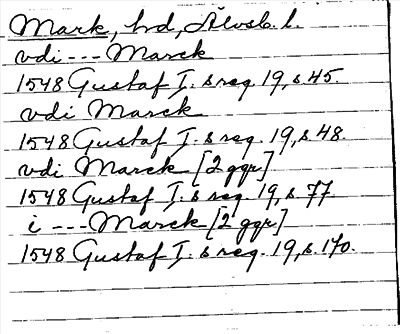 Mark, hd, Älvsb. l.
vdi --- Marck
1548 Gustaf I:s reg. 19, s. 45.
vdi Marck
1548 Gustaf I:s reg. 19, s. 48
vdi Marck [2 ggr]
1548 Gustaf I:s reg. 19, s. 77.
i --- Marck [2 ggr]
1548 Gustaf I:s reg. 19, s. 170.